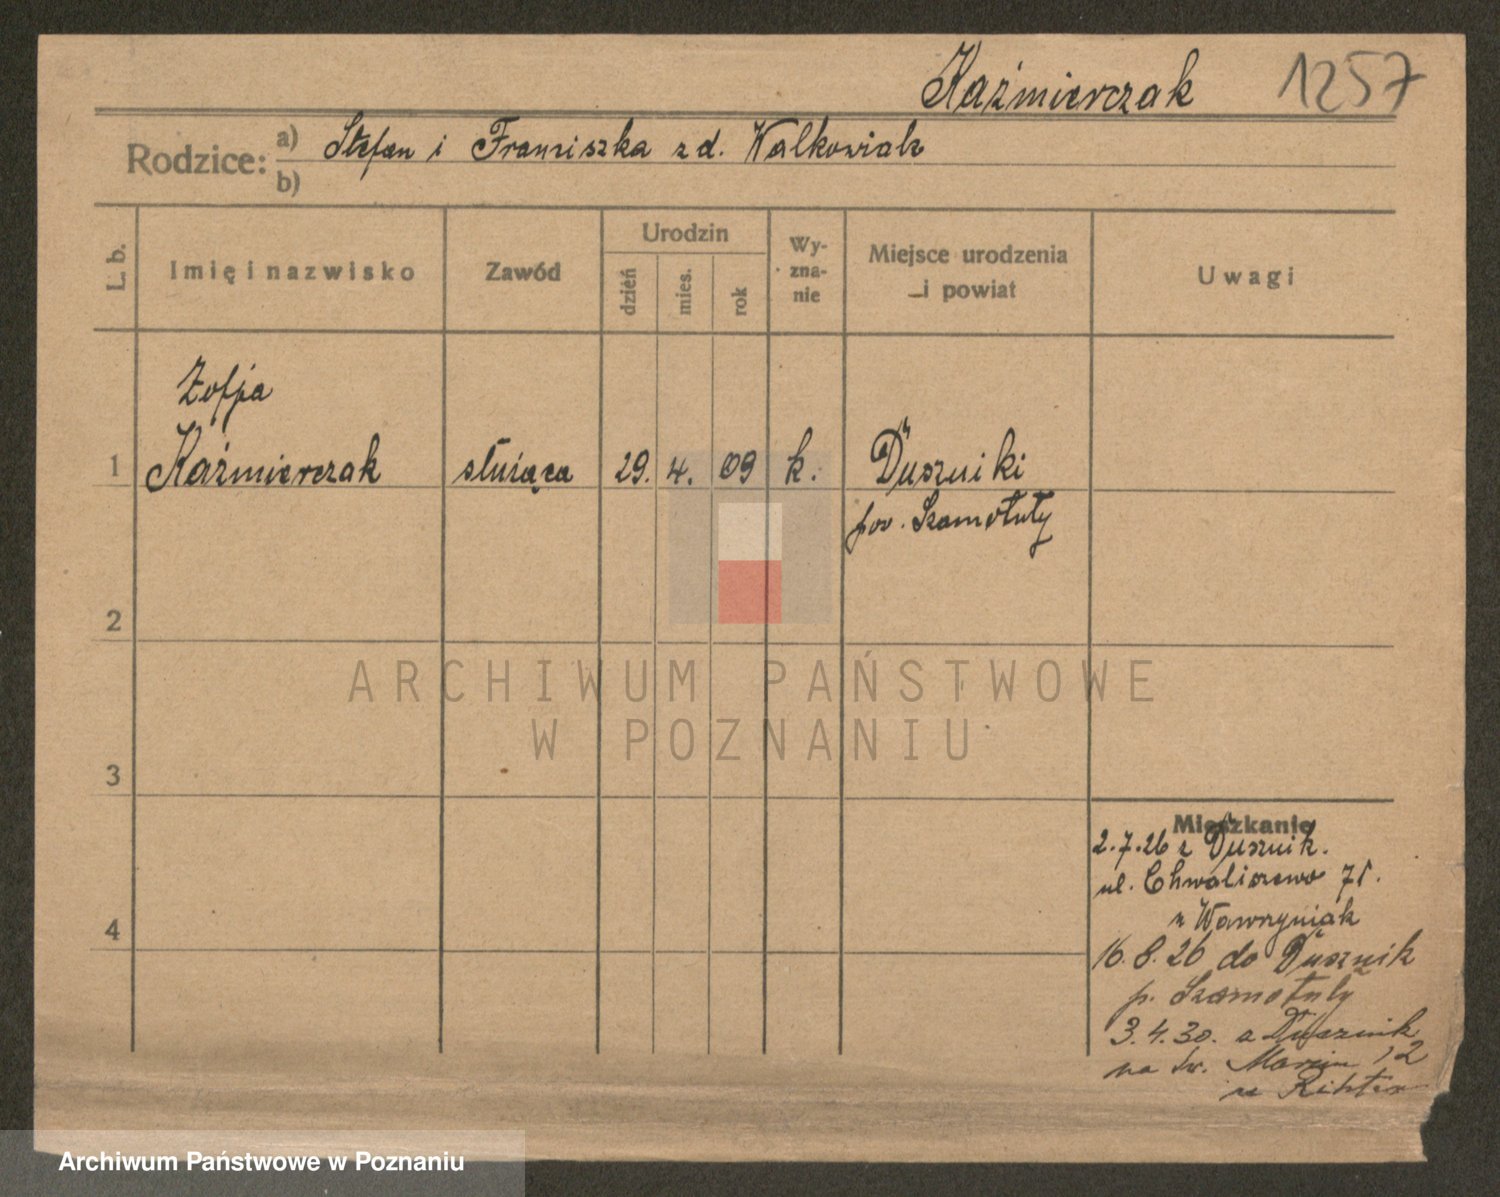 Kaźmierczak 1257
Rodzice: a) Stefan i Franciszka z d. Walkowiak
b)
L. b. Imię i nazwisko Zawód Urodzin dzień mies. rok Wy-zna-nie Miejsce urodzenia i powiat Uwagi
Zofja
1 Kaźmierczak służąca 29. 4. 09 k. Duszniki
pow. Szamotuły
2
ARCHIWUM PAŃSTWOWE
W POZNANIU
3
Mieszkanie
2.7.26 z Dusznik.
ul. Chwaliszewo 71.
u Wawrzyniak
4
16.8.26 do Dusznik
p. Szamotuły
3.4.30. z Dusznik
na św. Marcin 12
u Richter
Archiwum Państwowe w Poznaniu